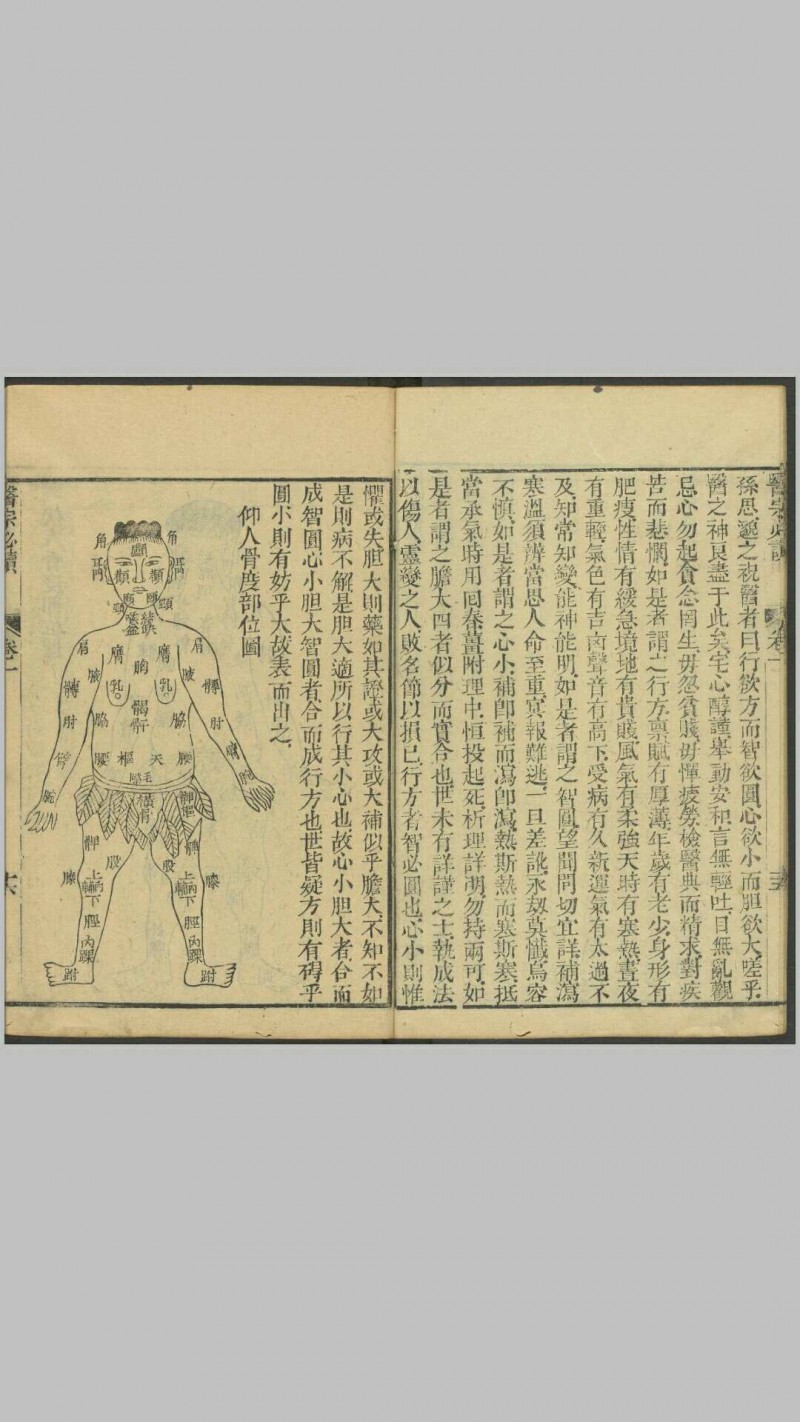 孫思邈之祝醫者曰行欲方而智欲圓心欲小而胆欲大嗟乎
醫之神良盡于此矣宅心醇謹舉動安和言無輕吐目無亂觀
忌心勿起貪念罔生毋忽貧賤毋憚疲勞檢醫典而精求對疾
苦而悲憫如是者謂之行方禀賦有厚薄年歲有老少身形有
肥瘦性情有緩急境地有貴賤風氣有柔強天時有寒熱晝夜
有重輕氣色有吉凶聲音有高下受病有久新運氣有太過不
及知常知變能神能明如是者謂之智圓望聞問切宜詳補瀉
寒溫須辨當思人命至重冥報難逃一旦差訛永劫莫懺烏容
不慎如是者謂之心小補卽補而瀉卽瀉熱斯熱而寒斯寒抵
當承氣時用回春薑附理中恒投起死析理詳明勿持兩可如
是者謂之膽大四者似分而實合也世未有詳謹之士執成法
以傷人靈變之人敗名節以損已行方者智必圓也心小則惟
懼或失胆大則藥如其證或大攻或大補似乎膽大不知不如
是則病不解是胆大適所以行其小心也故心小胆大者合而
成智圓心小胆大智圓者合而成行方也世皆疑方則有碍乎
圓小則有妨乎大故表而出之
仰人骨度部位圖
角
角
顱
耳
耳
顴
顴
頤
頸
頸
缺盆
肩
肩
膺
膺
胸
腋
腋
乳
乳
髃
髃
骬
肘
肘
脇
脇
臂
臂
腰
樞
天
腰
腕
毛
橫骨
髀
髀
股
股
膝
膝
上
輔
下
上
輔
下
脛
脛
內踝
內踝
跗
跗
醫宗必讀
卷一
十五
醫宗必讀
卷一
十六